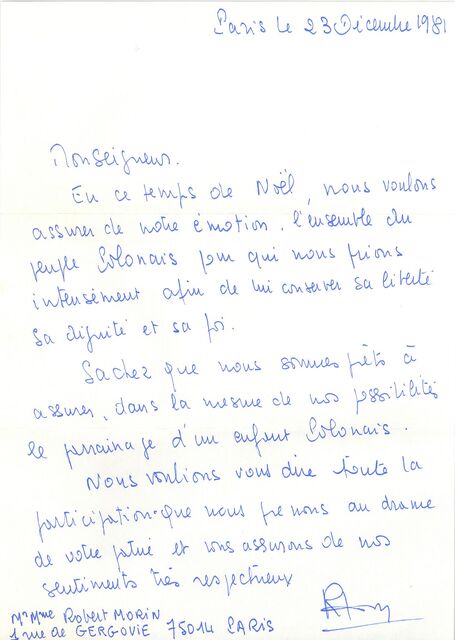 Paris le 23 Décembre 1981
Monseigneur.
En ce temps de Noël, nous voulons
assurer de notre émotion, l'ensemble du
peuple Polonais pour qui nous prions
intensément afin de lui conserver sa liberté
sa dignité et sa foi.
Sachez que nous sommes prêts à
assurer, dans la mesure de nos possibilités
le parrainage d'un enfant Polonais.
Nous voulions vous dire toute la
participation que nous prenons au drame
de votre patrie et vous assurons de nos
sentiments très respectueux
Mr Mme Robert MORIN
1 rue de GERGOVIE 75014 PARIS